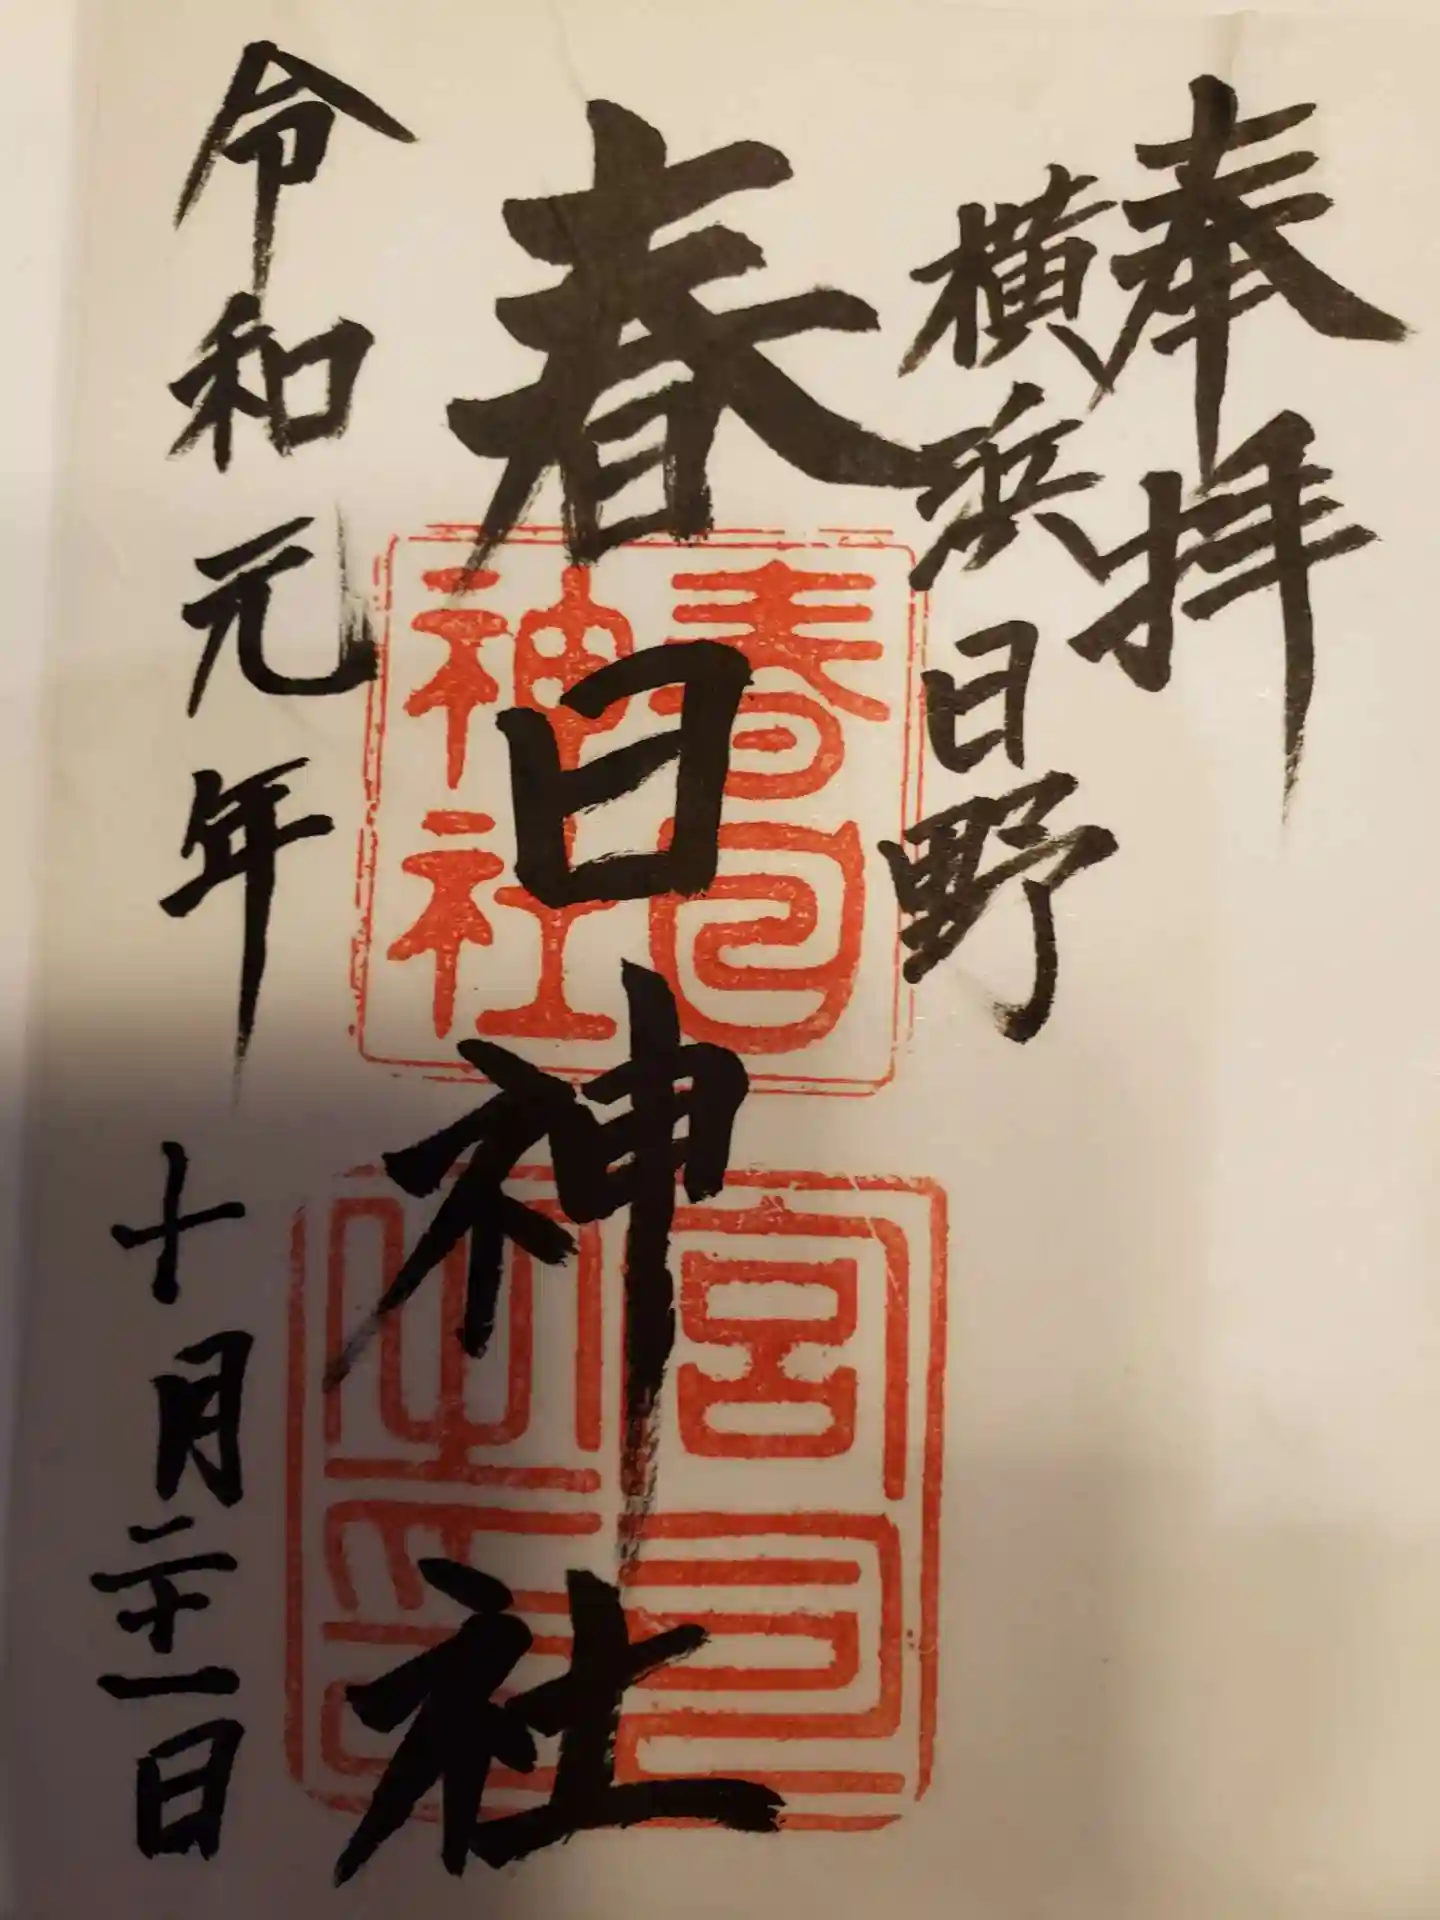 奉拝
横浜日野
春日神社
令和元年 十月二十一日
春日
神社
宮司
之印